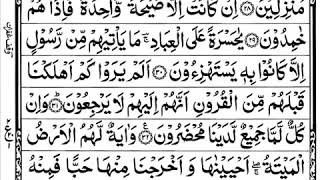 مُنْزِلِيْنَ ﴿۲۸﴾ اِنْ كَانَتْ اِلَّا صَيْحَةً وَّاحِدَةً فَاِذَا هُمْ
خٰمِدُوْنَ ﴿۲۹﴾ يٰحَسْرَةً عَلَى الْعِبَادِ ؔۚ مَا يَاْتِيْهِمْ مِّنْ رَّسُوْلٍ
اِلَّا كَانُوْا بِهٖ يَسْتَهْزِءُوْنَ ﴿۳۰﴾ اَلَمْ يَرَوْا كَمْ اَهْلَكْنَا
قَبْلَهُمْ مِّنَ الْقُرُوْنِ اَنَّهُمْ اِلَيْهِمْ لَا يَرْجِعُوْنَ ﴿۳۱﴾ وَاِنْ
كُلٌّ لَّمَّا جَمِيْعٌ لَّدَيْنَا مُحْضَرُوْنَ ﴿۳۲﴾ وَاٰيَةٌ لَّهُمُ الْاَرْضُ
الْمَيْتَةُ ۖۚ اَحْيَيْنٰهَا وَاَخْرَجْنَا مِنْهَا حَبًّا فَمِنْهُ